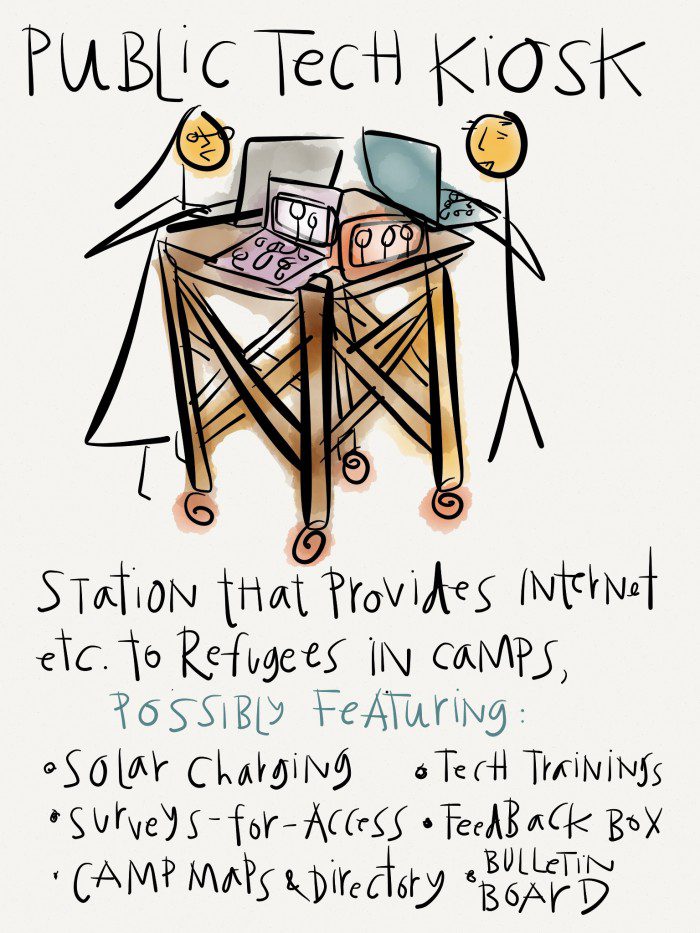 PUBLIC TECH KIOSK
STATION THAT PROVIDES INTERNET
etc. to Refugees in CAMPS,
POSSIBLY FEATURING:
• Solar Charging
• Tech Trainings
• Surveys-for-Access
• FeedBack Box
• CAMP MAPS & Directory
• BULLETIN
BOARD